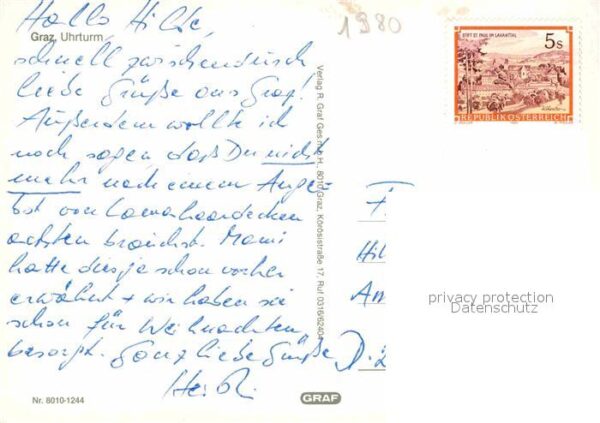 Hallo Hilde,
Graz, Uhrturm
schnell zwischendurch
liebe Grüße aus Graz!
Außerdem wollte ich
noch sagen daß Du nicht
mehr nach einem Ange-
bot von Lamahaardecken
achten brauchst. Mami
hatte dies je schon vorher
erwähnt + wir haben sie
schon für Weihnachten
besorgt. Ganz liebe Grüße
Nr. 8010-1244
GRAF
Verlag R. Graf Ges.m.b.H., 8010 Graz, Körösistraße 17, Ruf 0316/6240
1980
STIFT ST. PAUL IM LAVANTTAL
5s
REPUBLIK ÖSTERREICH
F
Hil
Am
D-2
privacy protection
Datenschutz